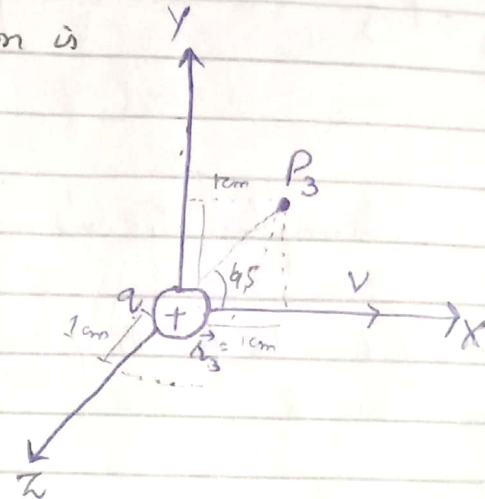 m is
Y
1cm
P3
45
V
q
+
1cm
r⃗3 = 1cm
X
Z